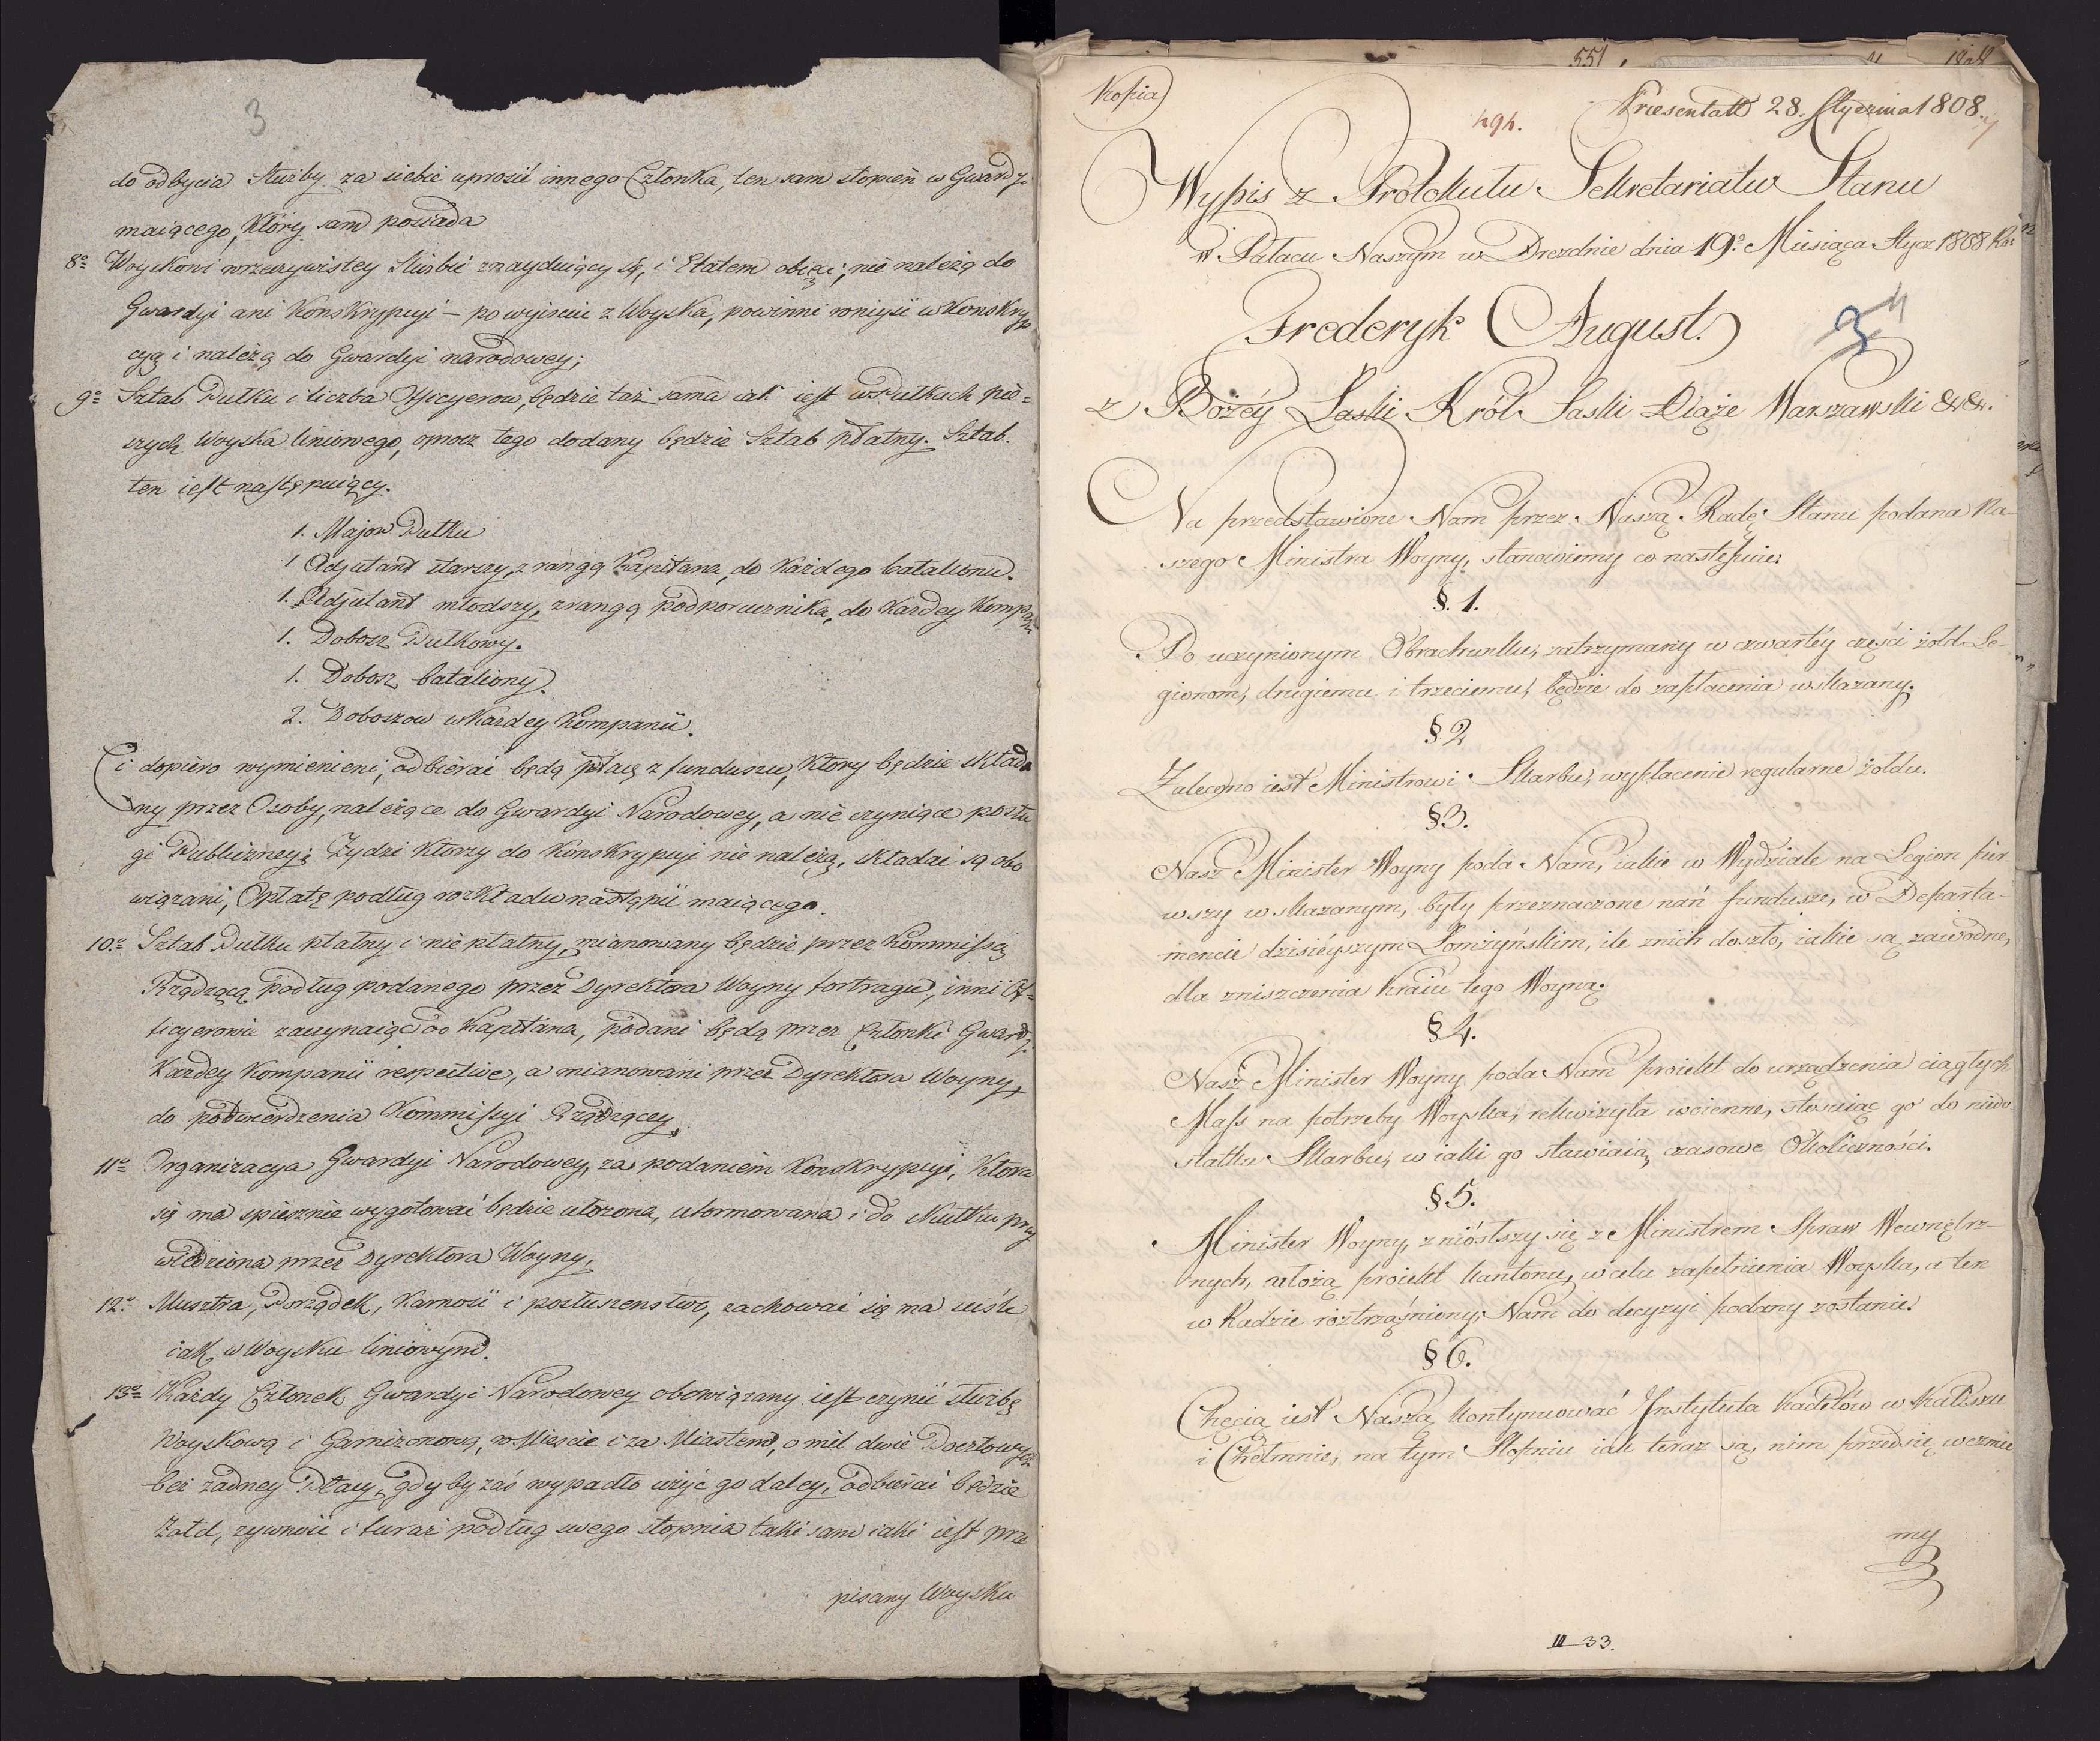 3
do odbycia Służby za siebie uprosić innego Członka, ten sam stopień w Gwardy.
maiącego, który sam posiada
8º Woyskowi w rzeczywistey Służbie znayduiący się, i Etatem obięci; nie należą do
Gwardyi ani Konskrypcyi – po wyiściu z Woyska, powinni wniyść w Konskryp
cyą i należą do Gwardyi narodowey;
9º Sztab Pułku i liczba Officyerow, będzie taż sama iak iest w Pułkach pie=
szych Woyska liniowego, oprocz tego dodany będzie Sztab płatny. Sztab
ten iest następuiący.
1. Major Pułku
1 Adjutant starszy, z rangą Kapitana, do Każdego batalionu.
1. Adjutant młodszy, z rangą podporucznika, do Każdey Kompanii
1. Dobosz Pułkowy.
1. Dobosz bataliony.
2. Doboszow w Każdey Kompanii.
Ci dopiero wymienieni, odbierać będą płacę z funduszu, Ktory będzie składa
ny przez Osoby, należące do Gwardyi Narodowey, a nie czyniące posłu
gi Publiczney; Zydzi Ktorzy do Konskrypcyi nie należą, składać są obo
wiązani, Opłatę podług rozkładu nastąpić maiącego.
10º Sztab Pułku płatny i nie płatny, mianowany będzie przez Kommissą
Rządzącą podług podanego przez Dyrektora Woyny fortragu, inni Of=
ficyerowie zaczynaiąc od Kapitana, podani będą przez Członki Gward.
Każdey Kompanii respective, a mianowani przez Dyrektora Woyny,
do podwierdzenia Kommissyi Rządzącey,
11º Organizacya Gwardyi Narodowey, za podaniem Konskrypcyi, Ktora
się ma spiesznie wygotować będzie ułożona, uformowana i do skutku przy
wiedziona przez Dyrektora Woyny,
12º Musztra, Porządek, Karność i posłuszenstwo, zachować się ma ściśle
iak, w Woysku liniowym.
13º Każdy Członek Gwardyi Narodowey obowiązany iest czynić służbę
Woyskową i Garnizonową, w Mieście i za Miastem, o mil dwie Pocztowych
bez żadney Płacy, gdyby zaś wypadło użyć go daley, odbierać będzie
Żołd, żywność i furaż podług swego stopnia taki sam iaki iest prze
pisany Woysku
551
1808
Kopia
494.
Priesentatt 28. Stycznia 1808.
Wypis z Protokułu Sekretariatu Stanu
w Pałacu Naszym w Dreznie dnia 19º Miesiąca Stycz 1808 Ro:
Frederyk August.
z Bożéy Łaski Król Saski Xiąże Warszawski &&.
Na przedstawione Nam przez Naszą Radę Stanu podana Na-
szego Ministra Woyny, stanowiemy co nastepuie:
§. 1.
Po uczynionym Obrachunku, zatrzymany w czwartéy części żołd Le-
gionom, drugiemu i trzeciemu, będzie do zapłacenia wskazany.
§ 2
Zalecono iest Ministrowi Skarbu, wypłacenie regularne żołdu.
§ 3.
Nasz Minister Woyny poda Nam, iakie w Wydziale na Legion pier
wszy wskazanym, były przeznaczone nań fundusze, w Departa-
mencie dzisiéyszym Łomżyńskim, ile znich doszło, iakie są zawodne,
dla zniszczenia Kraiu tego Woyną.
§ 4.
Nasz Minister Woyny poda Nam proiekt do urządzenia ciągłych
Mass na potrzeby Woyska, rekwizyta woienne, stosuiąc go do niedo
statku Skarbu, w iaki go stawiaią czasowe Okoliczności.
§ 5.
Minister Woyny, zniósłszy się z Ministrem Spraw Wewnętrz-
nych, ułożą proiekt kantonu, w celu zapełnienia Woyska, a ten
w Radzie roztrząśniony, Nam do decyzyi podany zostanie.
§ 6.
Chęcią iest Naszą kontynuować Instytuta Kadetów w Kaliszu
i Chełmnie, na tym Stopniu iak teraz są, nim przedsię weźmie
my
II 33.